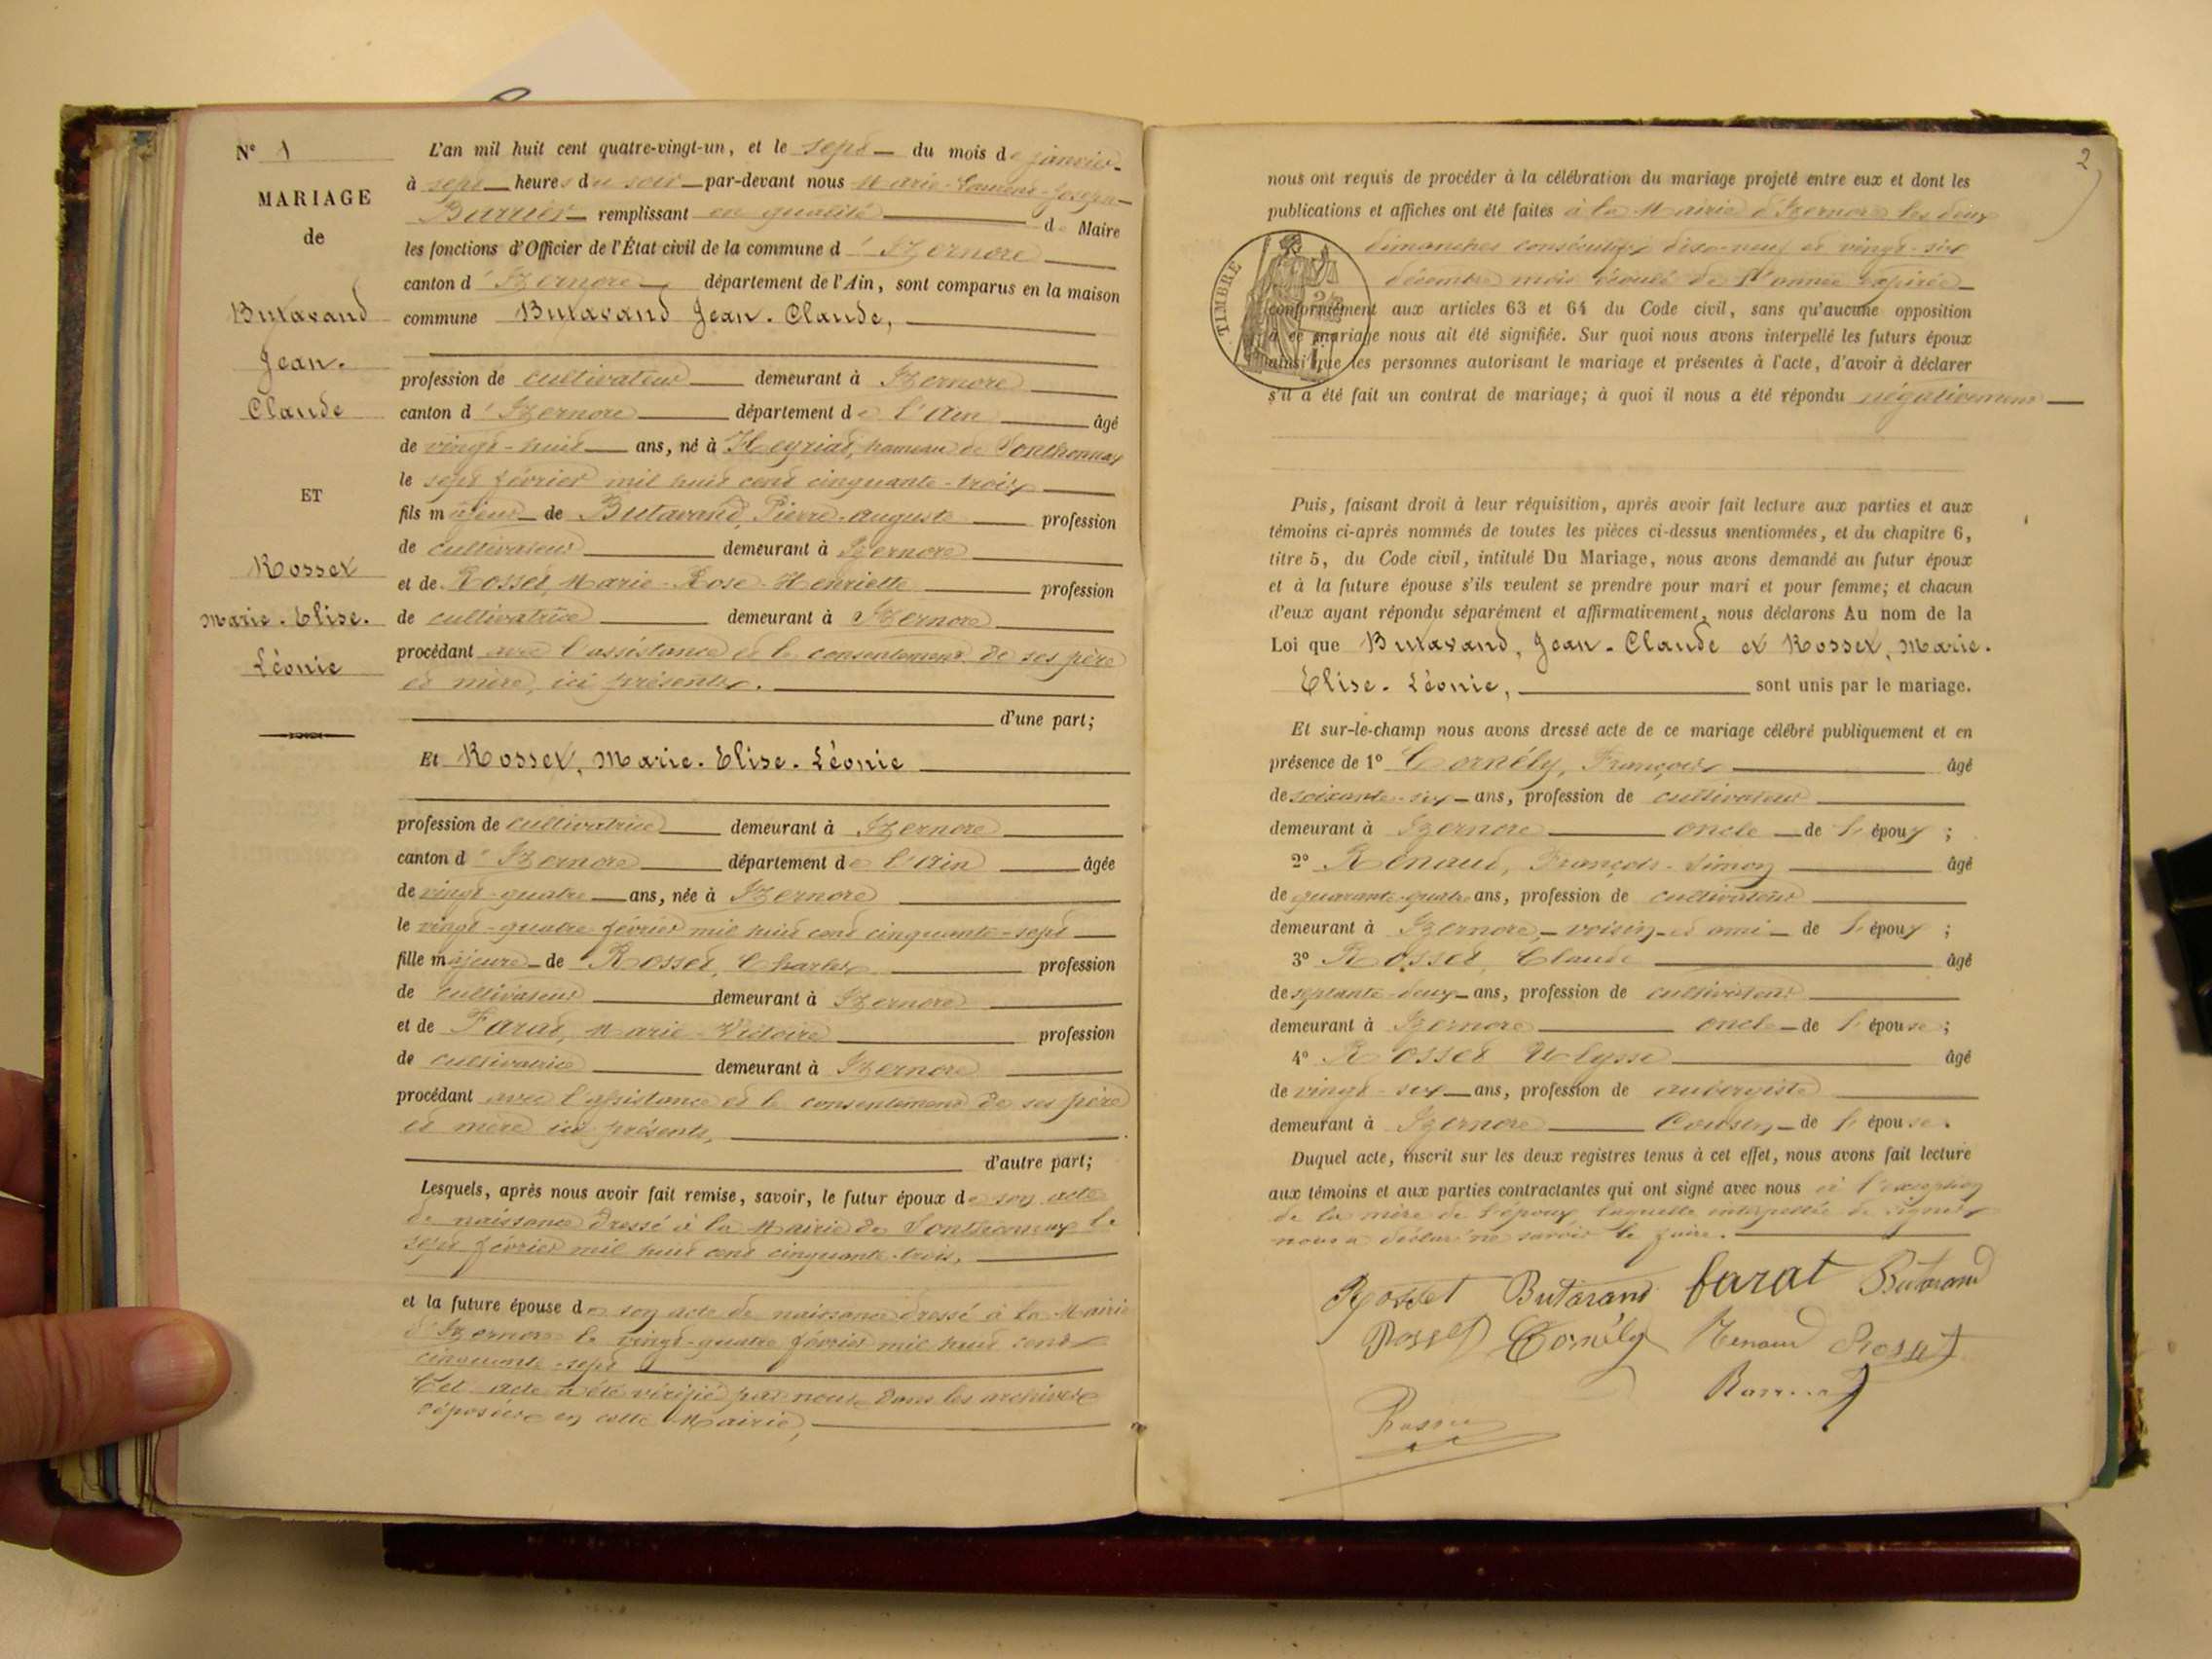 N° 1
MARIAGE
de
Butavand
Jean.
Claude
ET
Rosset
Marie. Elise.
Léonie
L'an mil huit cent quatre-vingt-un, et le sept du mois de janvier
à sept heures du soir par-devant nous Marie-Laurent-Joseph
remplissant en qualité de Maire
les fonctions d'Officier de l'État civil de la commune d'Izernore
canton d'Izernore département de l'Ain, sont comparus en la maison
commune Butavand Jean. Claude,
profession de cultivateur demeurant à Izernore
canton d'Izernore département de l'Ain âgé
de vingt-huit ans, né à Heyriat, hameau de Sonthonnax
le sept février mil huit cent cinquante-trois
fils majeur de Butavand, Pierre-Auguste profession
de cultivateur demeurant à Izernore
et de Rosset, Marie-Rose-Henriette profession
de cultivatrice demeurant à Izernore
procédant avec l'assistance et le consentement de ses père
et mère, ici présents.
d'une part;
Et Rosset, Marie. Elise. Léonie
profession de cultivatrice demeurant à Izernore
canton d'Izernore département de l'Ain âgée
de vingt-quatre ans, née à Izernore
le vingt-quatre février mil huit cent cinquante-sept
fille majeure de Rosset, Charles profession
de cultivateur demeurant à Izernore
et de Farat, Marie-Victoire profession
de cultivatrice demeurant à Izernore
procédant avec l'assistance et le consentement de ses père
et mère ici présents,
d'autre part;
Lesquels, après nous avoir fait remise, savoir, le futur époux de son acte
de naissance dressé à la Mairie de Sonthonnax le
sept février mil huit cent cinquante-trois,
et la future épouse de son acte de naissance dressé à la Mairie
d'Izernore le vingt-quatre février mil huit cent
cinquante-sept
Cet acte a été vérifié par nous dans les archives
déposées en cette Mairie,
2
nous ont requis de procéder à la célébration du mariage projeté entre eux et dont les
publications et affiches ont été faites à la Mairie d'Izernore les deux
dimanches consécutifs dix-neuf et vingt-six
décembre mois écoulé de l'année expirée
TIMBRE
conformément aux articles 63 et 64 du Code civil, sans qu'aucune opposition
à ce mariage nous ait été signifiée. Sur quoi nous avons interpellé les futurs époux
ainsi que les personnes autorisant le mariage et présentes à l'acte, d'avoir à déclarer
s'il a été fait un contrat de mariage; à quoi il nous a été répondu négativement
Puis, faisant droit à leur réquisition, après avoir fait lecture aux parties et aux
témoins ci-après nommés de toutes les pièces ci-dessus mentionnées, et du chapitre 6,
titre 5, du Code civil, intitulé Du Mariage, nous avons demandé au futur époux
et à la future épouse s'ils veulent se prendre pour mari et pour femme; et chacun
d'eux ayant répondu séparément et affirmativement, nous déclarons Au nom de la
Loi que Butavand, Jean. Claude et Rosset, Marie.
Elise. Léonie, sont unis par le mariage.
Et sur-le-champ nous avons dressé acte de ce mariage célébré publiquement et en
présence de 1° Cornély, François âgé
de soixante-six ans, profession de cultivateur
demeurant à Izernore oncle de l'époux ;
2° Renaud, François-Simon âgé
de quarante-quatre ans, profession de cultivateur
demeurant à Izernore, voisin et ami de l'époux ;
3° Rosset, Claude âgé
de septante-deux ans, profession de cultivateur
demeurant à Izernore oncle de l'épouse ;
4° Rosset Ulysse âgé
de vingt-six ans, profession de aubergiste
demeurant à Izernore Cousin de l'épouse.
Duquel acte, inscrit sur les deux registres tenus à cet effet, nous avons fait lecture
aux témoins et aux parties contractantes qui ont signé avec nous à l'exception
de la mère de l'époux laquelle interpellée de signer
nous a déclaré ne savoir le faire.
Rosset Butavand farat Butavand
Rosset Cornély Renaud Rosset